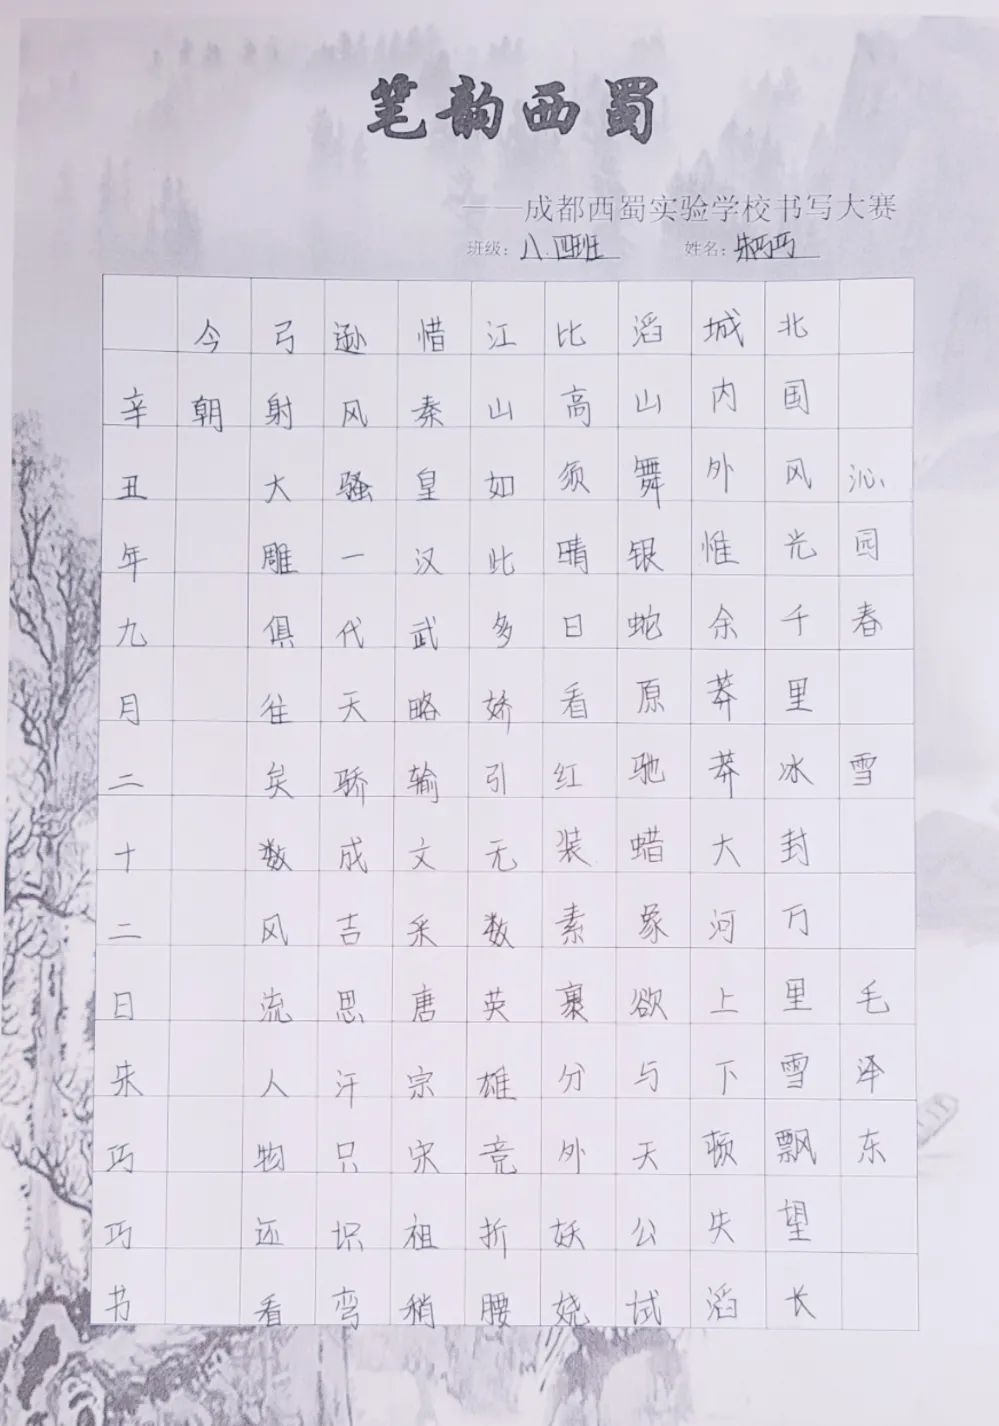 笔韵西蜀
——成都西蜀实验学校书写大赛
班级：八.四班 姓名：朱巧巧
沁园春 雪 毛泽东
北国风光千里冰封万里雪飘望长
城内外惟余莽莽大河上下顿失滔
滔山舞银蛇原驰蜡象欲与天公试
比高须晴日看红装素裹分外妖娆
江山如此多娇引无数英雄竞折腰
惜秦皇汉武略输文采唐宗宋祖稍
逊风骚一代天骄成吉思汗只识弯
弓射大雕俱往矣数风流人物还看
今朝
辛丑年九月二十二日朱巧巧书